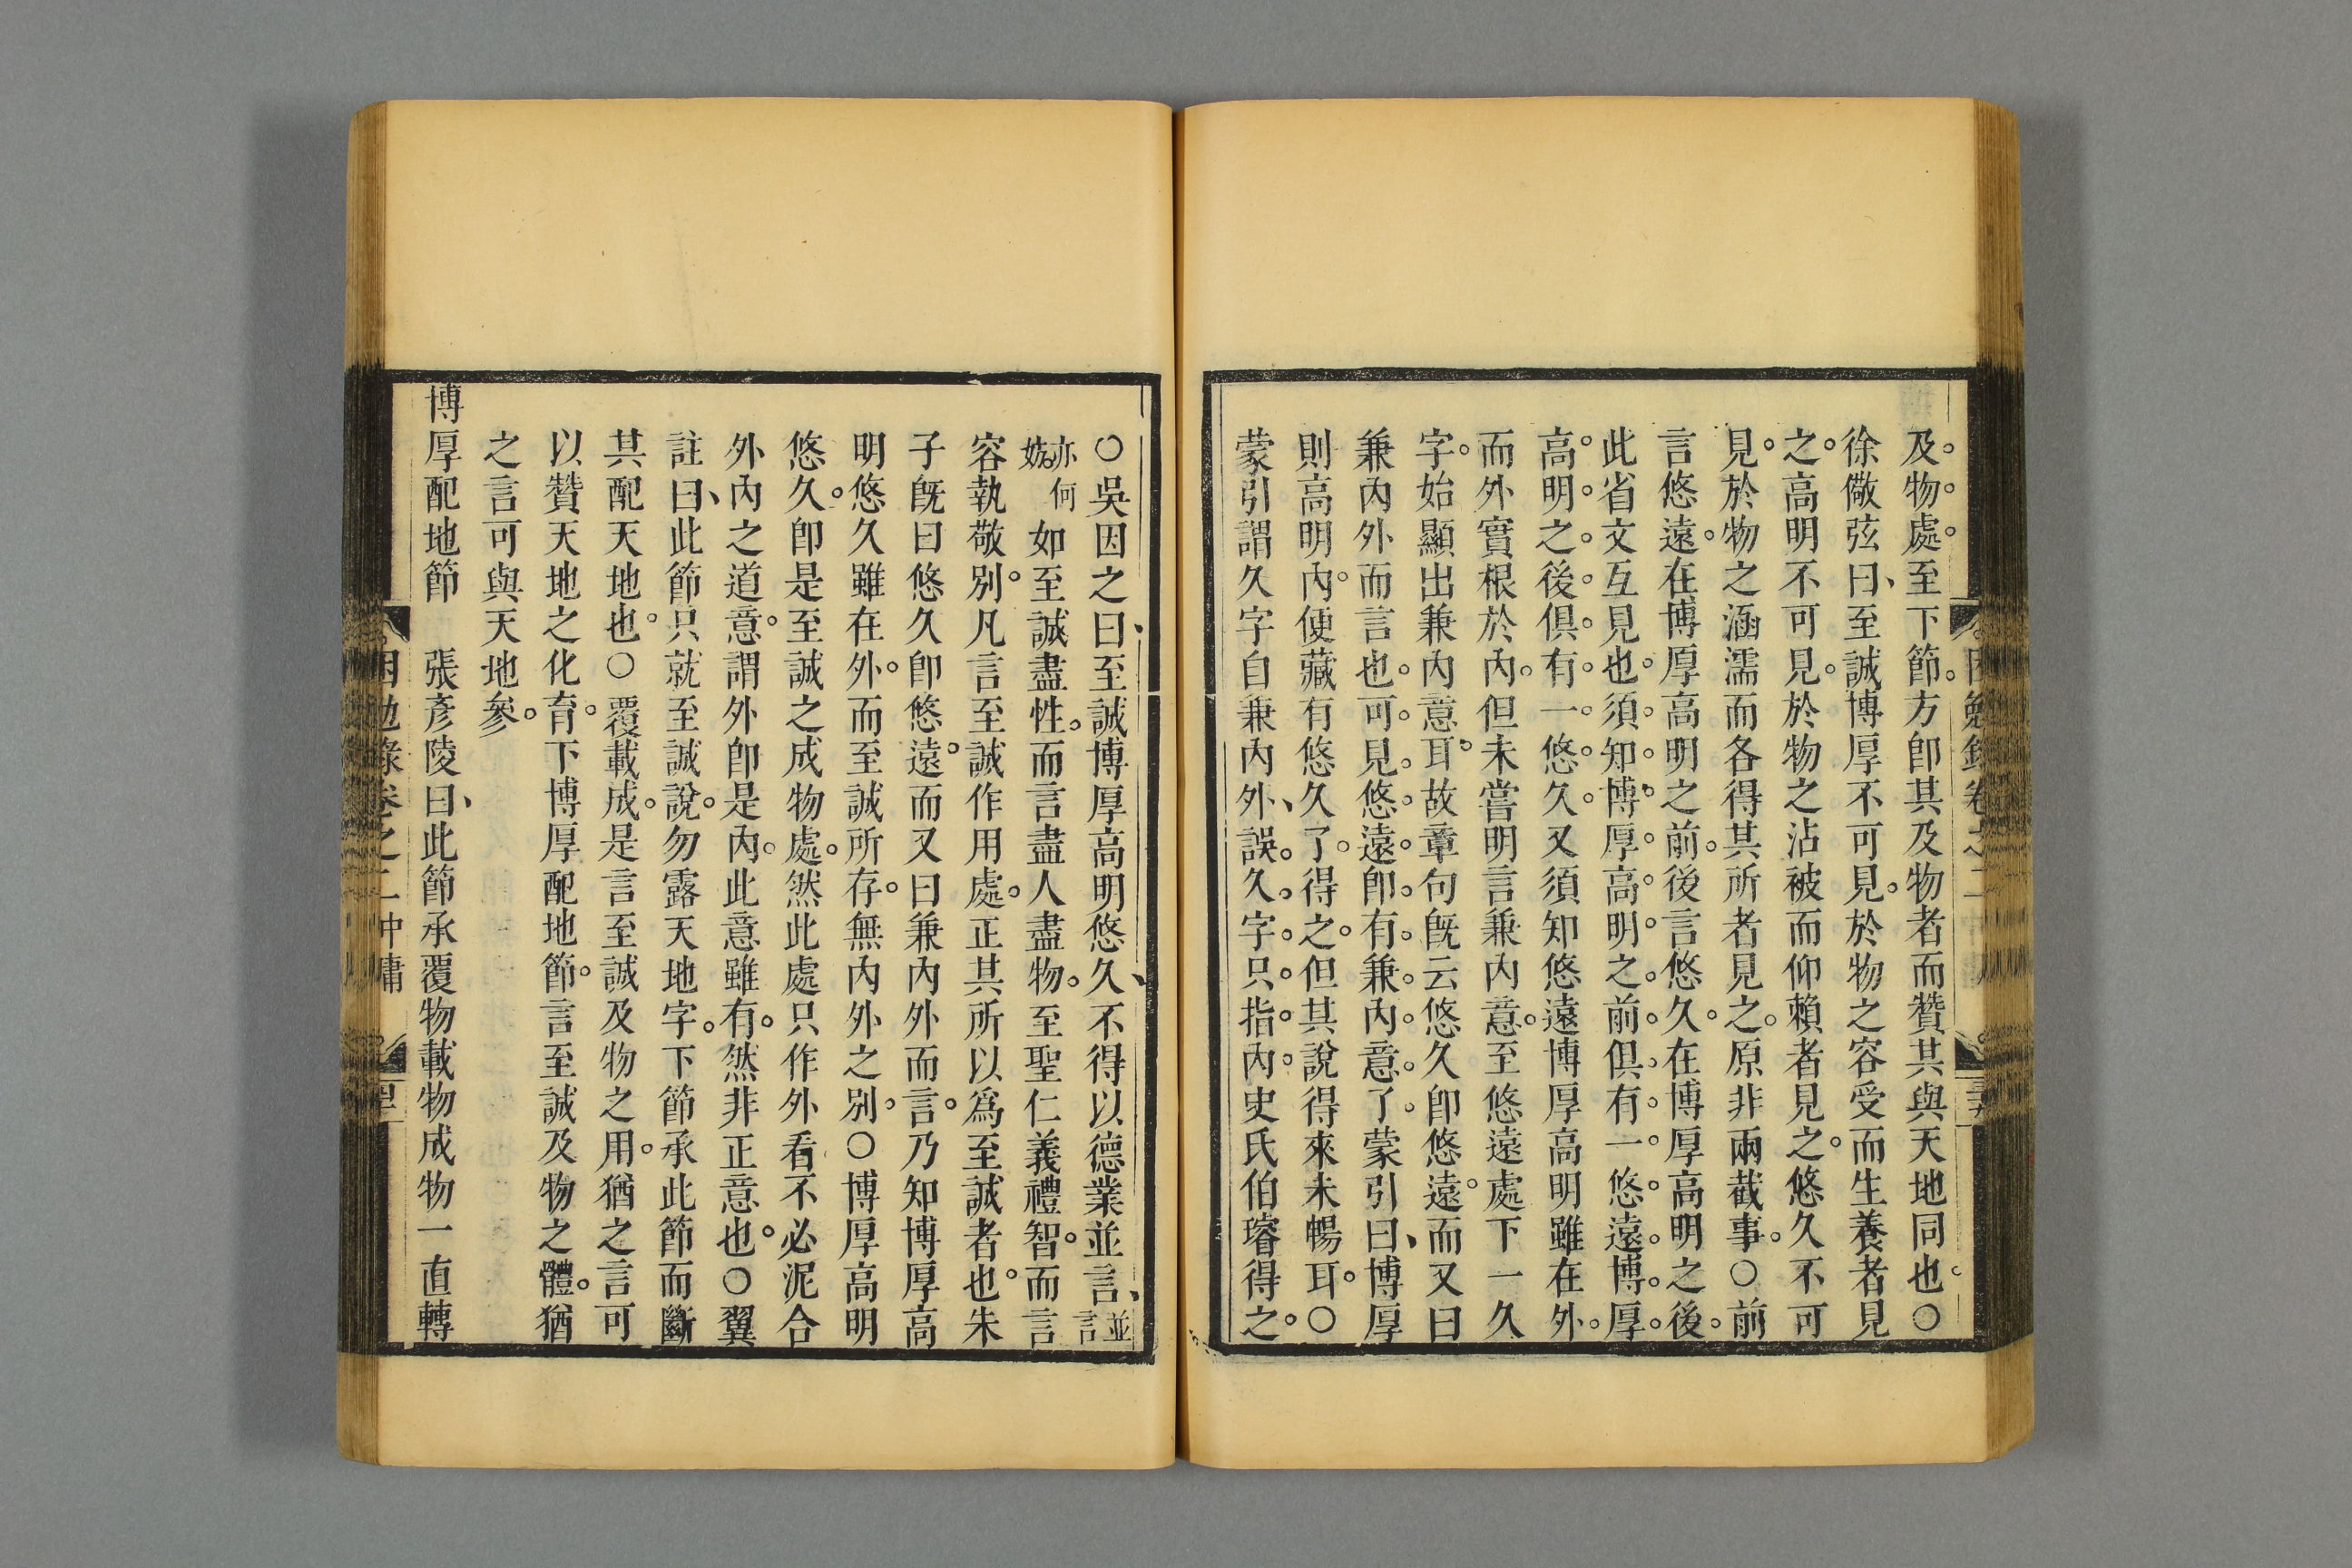 及物處至下節方卽其及物者而贊其與天地同也○
徐儆弦曰至誠博厚不可見於物之容受而生養者見
之高明不可見於物之沾被而仰賴者見之悠久不可
見於物之涵濡而各得其所者見之原非兩截事○前
言悠遠在博厚高明之前後言悠久在博厚高明之後
此省文互見也須知博厚高明之前俱有一悠遠博厚
高明之後俱有一悠久又須知悠遠博厚高明雖在外
而外實根於內但未嘗明言兼內意至悠遠處下一久
字始顯出兼內意耳故章句旣云悠久卽悠遠而又曰
兼內外而言也可見悠遠卽有兼內意了蒙引曰博厚
則高明內便藏有悠久了得之但其說得來未暢耳○
蒙引謂久字自兼內外誤久字只指內史氏伯璿得之
○吳因之曰至誠博厚高明悠久不得以德業並言並言
亦何妨如至誠盡性而言盡人盡物至聖仁義禮智而言
容執敬別凡言至誠作用處正其所以爲至誠者也朱
子旣曰悠久卽悠遠而又曰兼內外而言乃知博厚高
明悠久雖在外而至誠所存無內外之別○博厚高明
悠久卽是至誠之成物處然此處只作外看不必泥合
外內之道意謂外卽是內此意雖有然非正意也○翼
註曰此節只就至誠說勿露天地字下節承此節而斷
其配天地也○覆載成是言至誠及物之用猶之言可
以贊天地之化育下博厚配地節言至誠及物之體猶
之言可與天地參
博厚配地節　張彥陵曰此節承覆物載物成物一直轉
困勉錄卷之二中庸